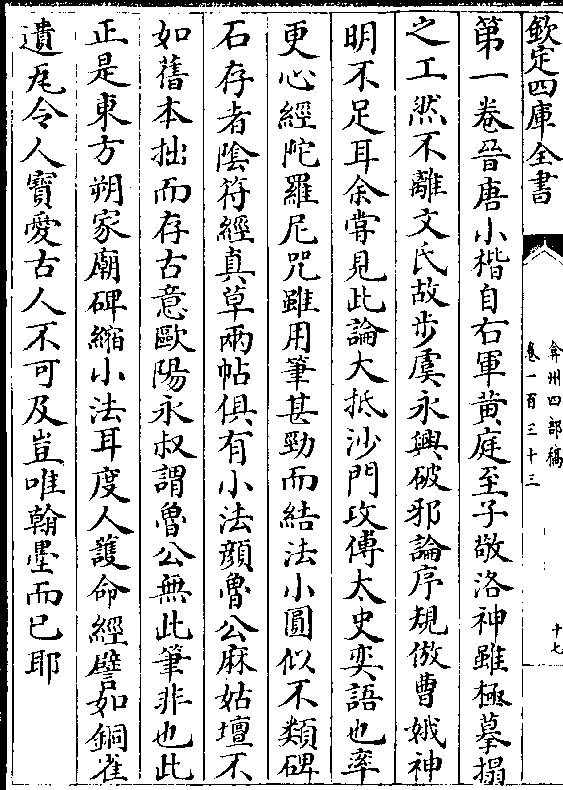 欽定四庫全書
弇州四部稿
卷一百三十三
十七
第一卷晉唐小楷自右軍黄庭至子敬洛神雖極摹搨
之工然不離文氏故步虞永興破邪論序規倣曹娥神
明不足耳余嘗見此論大抵沙門攻傅太史奕語也率
更心經陀羅尼咒雖用筆甚勁而結法小圓似不類碑
石存者陰符經真草兩帖俱有小法顔魯公麻姑壇不
如舊本拙而存古意歐陽永叔謂魯公無此筆非也此
正是東方朔家廟碑縮小法耳度人護命經譬如銅雀
遺瓦令人寳愛古人不可及豈唯翰墨而已耶